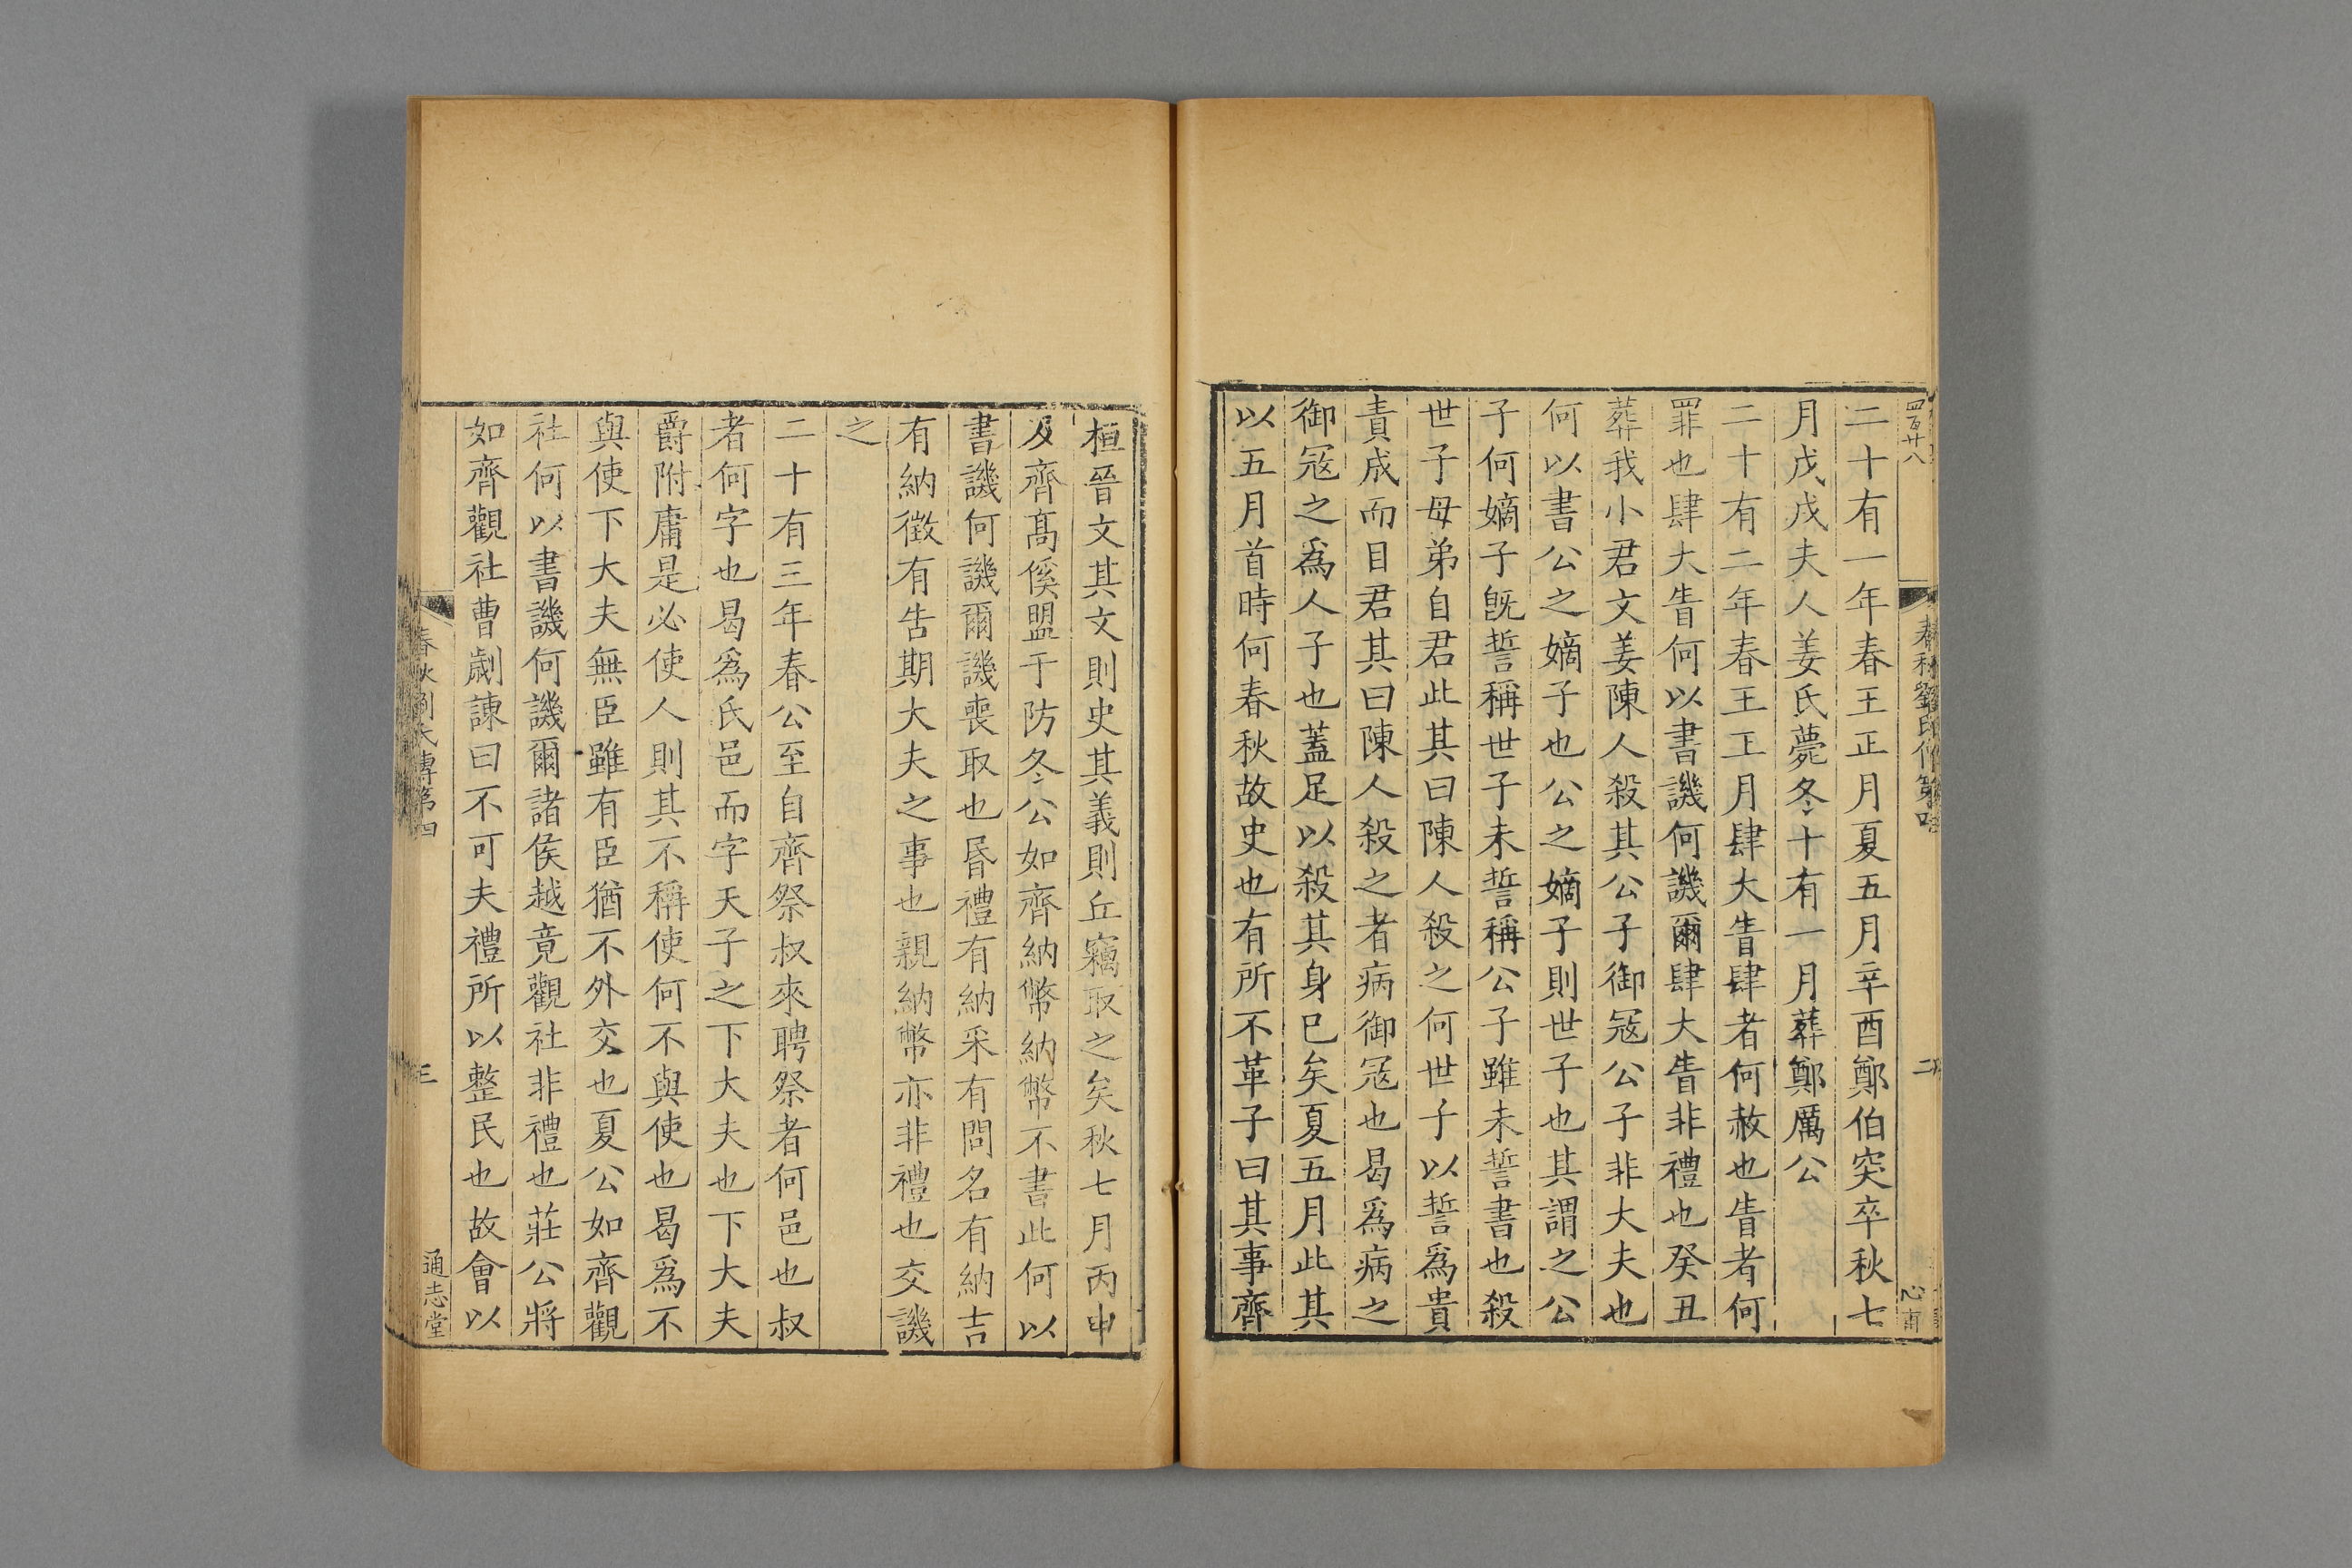 四百廿八
春秋劉氏傳第四
二
二十有一年春王正月夏五月辛酉鄭伯突卒秋七
月戊戌夫人姜氏薨冬十有一月葬鄭厲公
二十有二年春王正月肆大眚肆者何赦也眚者何
罪也肆大眚何以書譏何譏爾肆大眚非禮也癸丑
葬我小君文姜陳人殺其公子御寇公子非大夫也
何以書公之嫡子也公之嫡子則世子也其謂之公
子何嫡子旣誓稱世子未誓稱公子雖未誓書也殺
世子母弟自君此其曰陳人殺之何世子以誓爲貴
責成而目君其曰陳人殺之者病御寇也曷爲病之
御寇之爲人子也蓋足以殺其身已矣夏五月此其
以五月首時何春秋故史也有所不革子曰其事齊
桓晉文其文則史其義則丘竊取之矣秋七月丙申
及齊髙傒盟于防冬公如齊納幣納幣不書此何以
書譏何譏爾譏喪取也昏禮有納采有問名有納吉
有納徵有告期大夫之事也親納幣亦非禮也交譏
之
二十有三年春公至自齊祭叔來聘祭者何邑也叔
者何字也曷爲氏邑而字天子之下大夫也下大夫
爵附庸是必使人則其不稱使何不與使也曷爲不
與使下大夫無臣雖有臣猶不外交也夏公如齊觀
社何以書譏何譏爾諸侯越竟觀社非禮也莊公將
如齊觀社曹劌諫曰不可夫禮所以整民也故會以
春秋劉氏傳第四
三
通志堂